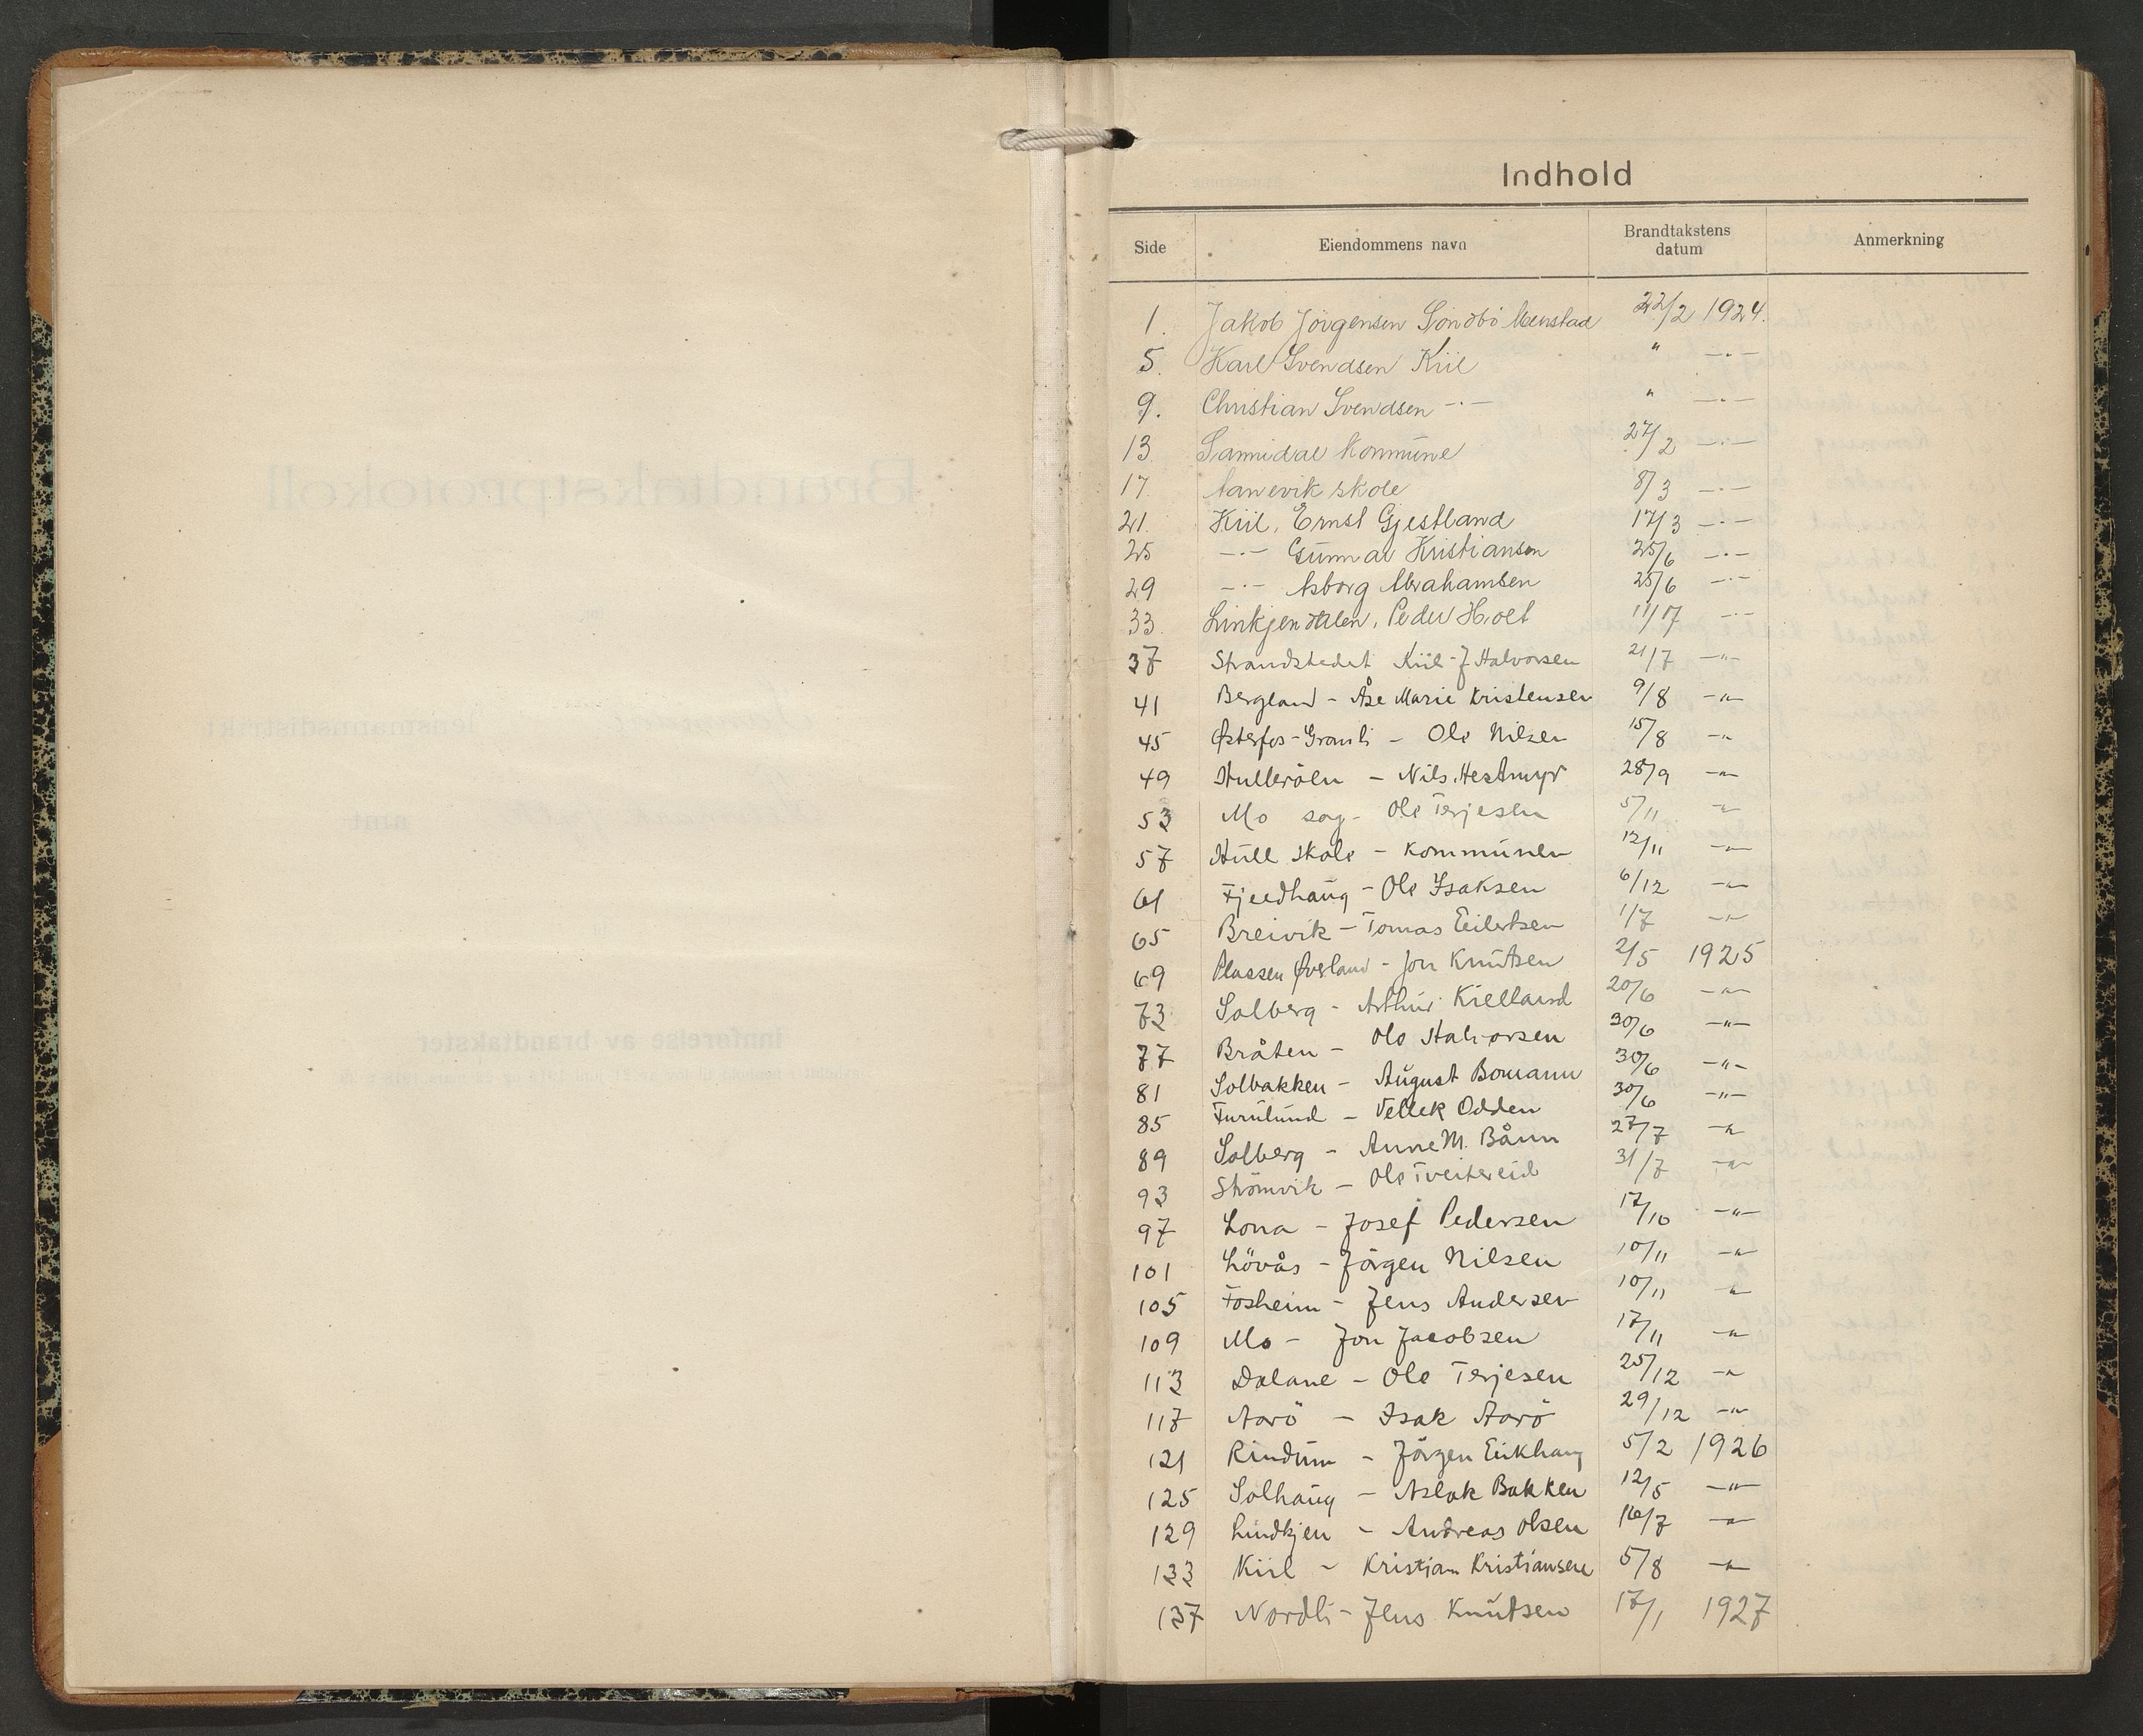 Indhold
Side Eiendommens navn Brandtakstens datum Anmerkning
1. Jakob Jörgensen Sondbö 22/2 1924.
5. Karl Svendsen Kiil " -·-
9. Christian Svendsen -·- " -·-
13 Sannidal Kommune 27/2 -·-
17. skole 8/3 -·-
21. Kiil, Ernst Gjestland 17/3 -·-
25 -·- Gunnar Kristiansen 25/6 -·-
29 -·- Asborg Abrahamsen 25/6 -·-
33 Peder Holt 11/7 -·-
37 Strandstedet Kiil - J Halvorsen 21/7 -"-
41 Bergland - Åse Marie Kristensen 9/8 -"-
45 Østerfos-Granli - Ole Nilsen 15/8 -"-
49 Hulleröen - Nils Hestmyr 28/9 -"-
53 Mo sag - Ole Terjesen 5/11 -"-
57 Hull skole - kommunen 12/11 -"-
61 Fjeldhaug - Ole Isaksen 6/12 -"-
65 Breivik - Tomas Eilertsen 1/7 -"-
69 Plassen Øverland - Jon Knutsen 2/5 1925
73 Solberg - Arthur Kielland 20/6 -"-
77 Bråten - Ole Halvorsen 30/6 -"-
81 Solbakken - August Bomann 30/6 -"-
85 Furulund - Vellek Odden 30/6 -"-
89 Solberg - Anne M. Bånn 27/7 -"-
93 Strömvik - Ole Tveitereid 31/7 -"-
97 Lona - Josef Pedersen 17/10 -"-
101 Lövås - Jörgen Nilsen 10/11 -"-
105 Fosheim - Jens Andersen 10/11 -"-
109 Mo - Jon Jacobsen 17/11 -"-
113 Dalane - Ole Terjesen 25/12 -"-
117 Aarö - Isak Aarö 29/12 -"-
121 Rindum - Jörgen Eikhaug 5/2 1926
125 Solhaug - Aslak Bakken 12/5 -"-
129 Lindkjen - Andreas Olsen 16/7 -"-
133 Kiil - Kristian Kristiansen 5/8 -"-
137 Nordli - Jens Knutsen 17/1 1927